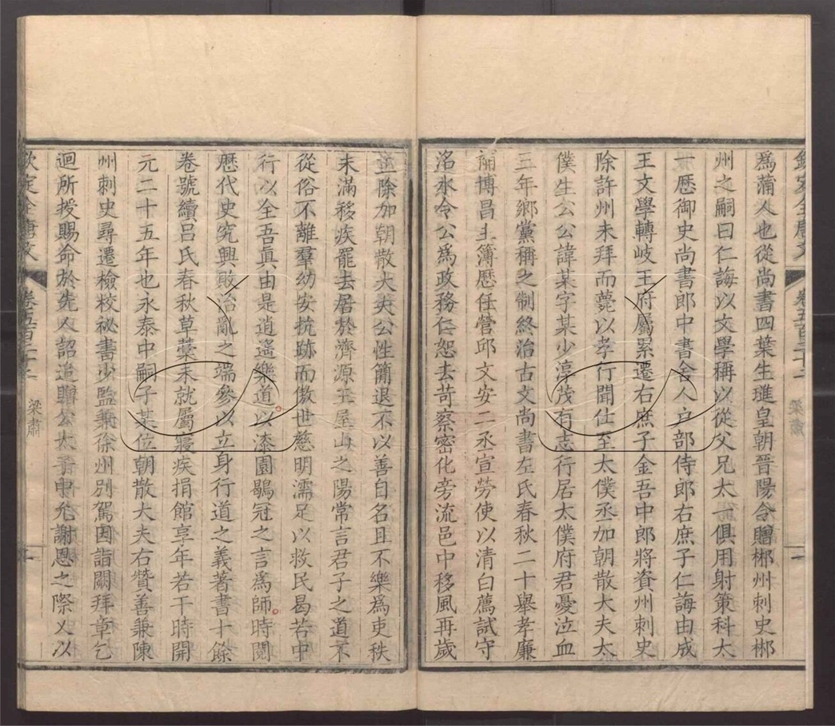 為蒲人也從尚書四葉生璡皇朝晉陽令贈郴州刺史郴
州之嗣曰仁誨以文學稱以從父兄太一俱用射策科太
一歷御史尚書郎中書舍人戶部侍郎右庶子仁誨由成
王文學轉岐王府屬累遷右庶子金吾中郎將資州刺史
除許州未拜而薨以孝行聞仕至太僕丞加朝散大夫太
僕生公公諱某字某少淳茂有志行居太僕府君憂泣血
三年鄉黨稱之制終治古文尚書左氏春秋二十舉孝廉
博昌主簿歷任營邱文安二丞宣勞使以清白薦試守
洺水令公為政務仁恕去苛察密化旁流邑中移風再歲
並除加朝散大夫公性簡退不以善自名且不樂為吏秩
未滿移疾罷去居於濟源王屋山之陽常言君子之道不
從俗不離羣幼安抗跡而傲世慈明濡足以救民曷若中
行以全吾真由是逍遙樂道以漆園鶡冠之言為師時閱
歷代史究興敗治亂之端參以立身行道之義著書十餘
卷號續呂氏春秋草藁未就屬寢疾捐館享年若干時開
元二十五年也永泰中嗣子某位朝散大夫右贊善兼陳
州刺史尋遷檢校祕書少監兼徐州別駕因詣闕拜章乞
迴所授賜命於先人詔追贈公太子中允謝恩之際又以
欽定全唐文
梁肅